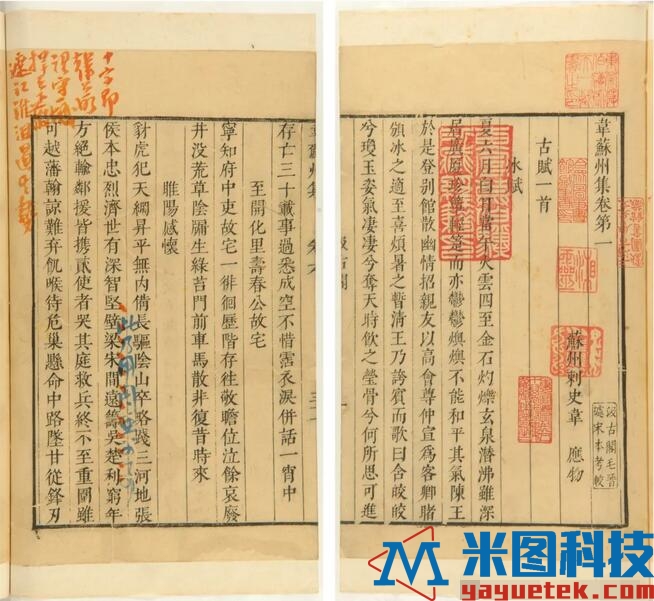 韋蘇州集卷第一
汲古閣毛晉
據宋本考較
蘇州刺史韋 應物
古賦一首
冰賦
夏六月白日當午火雲四至金石灼爍玄泉潛沸雖深
居廣厦珍簟輕箑而亦鬱鬱燠燠不能和平其氣陳王
於是登别館散幽情招親友以高會尊仲宣爲客卿睹
頒冰之適至喜煩暑之暫清王乃誇賓而歌曰含皎皎
兮瓊玉姿氣凄凄兮奪天時飲之瑩骨兮何所思可進
汲古閣
存亡三十載事過悉成空不惜霑衣淚併話一宵中
至開化里壽春公故宅
寧知府中吏故宅一徘徊歷階存往敬瞻位泣餘哀廢
井沒荒草陰牖生綠苔門前車馬散非復昔時來
睢陽感懷
豺虎犯天綱昇平無內備長驅陰山卒略踐三河地張
侯本忠烈濟世有深智堅壁梁宋間遠籌吳楚利窮年
方絕輸鄰援皆攜貳使者哭其庭救兵終不至重圍雖
可越藩翰諒難棄飢喉待危巢懸命中路墜甘從鋒刃
米图科技
www.yayuetek.com